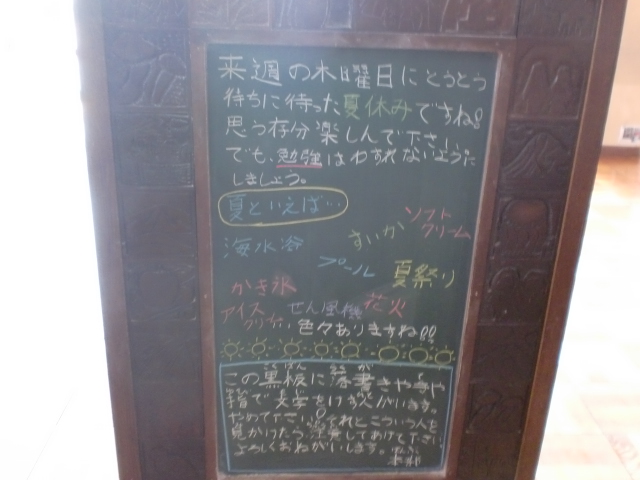 来週の木曜日にとうとう
待ちに待った夏休みですね!!
思う存分楽しんで下さい。
でも、勉強はわすれないように
しましょう。
夏といえば…
ソフト
クリーム
すいか
海水浴
プール
夏祭り
かき氷
せん風機
花火
アイス
クリーム
色々ありますね!!
こくばん らくが
この黒板に落書きや
指で文字をける人がいます。
やめて下さい。それとこういう人を
見かけたら注意してあげて下さい。
よろしくおねがいします。